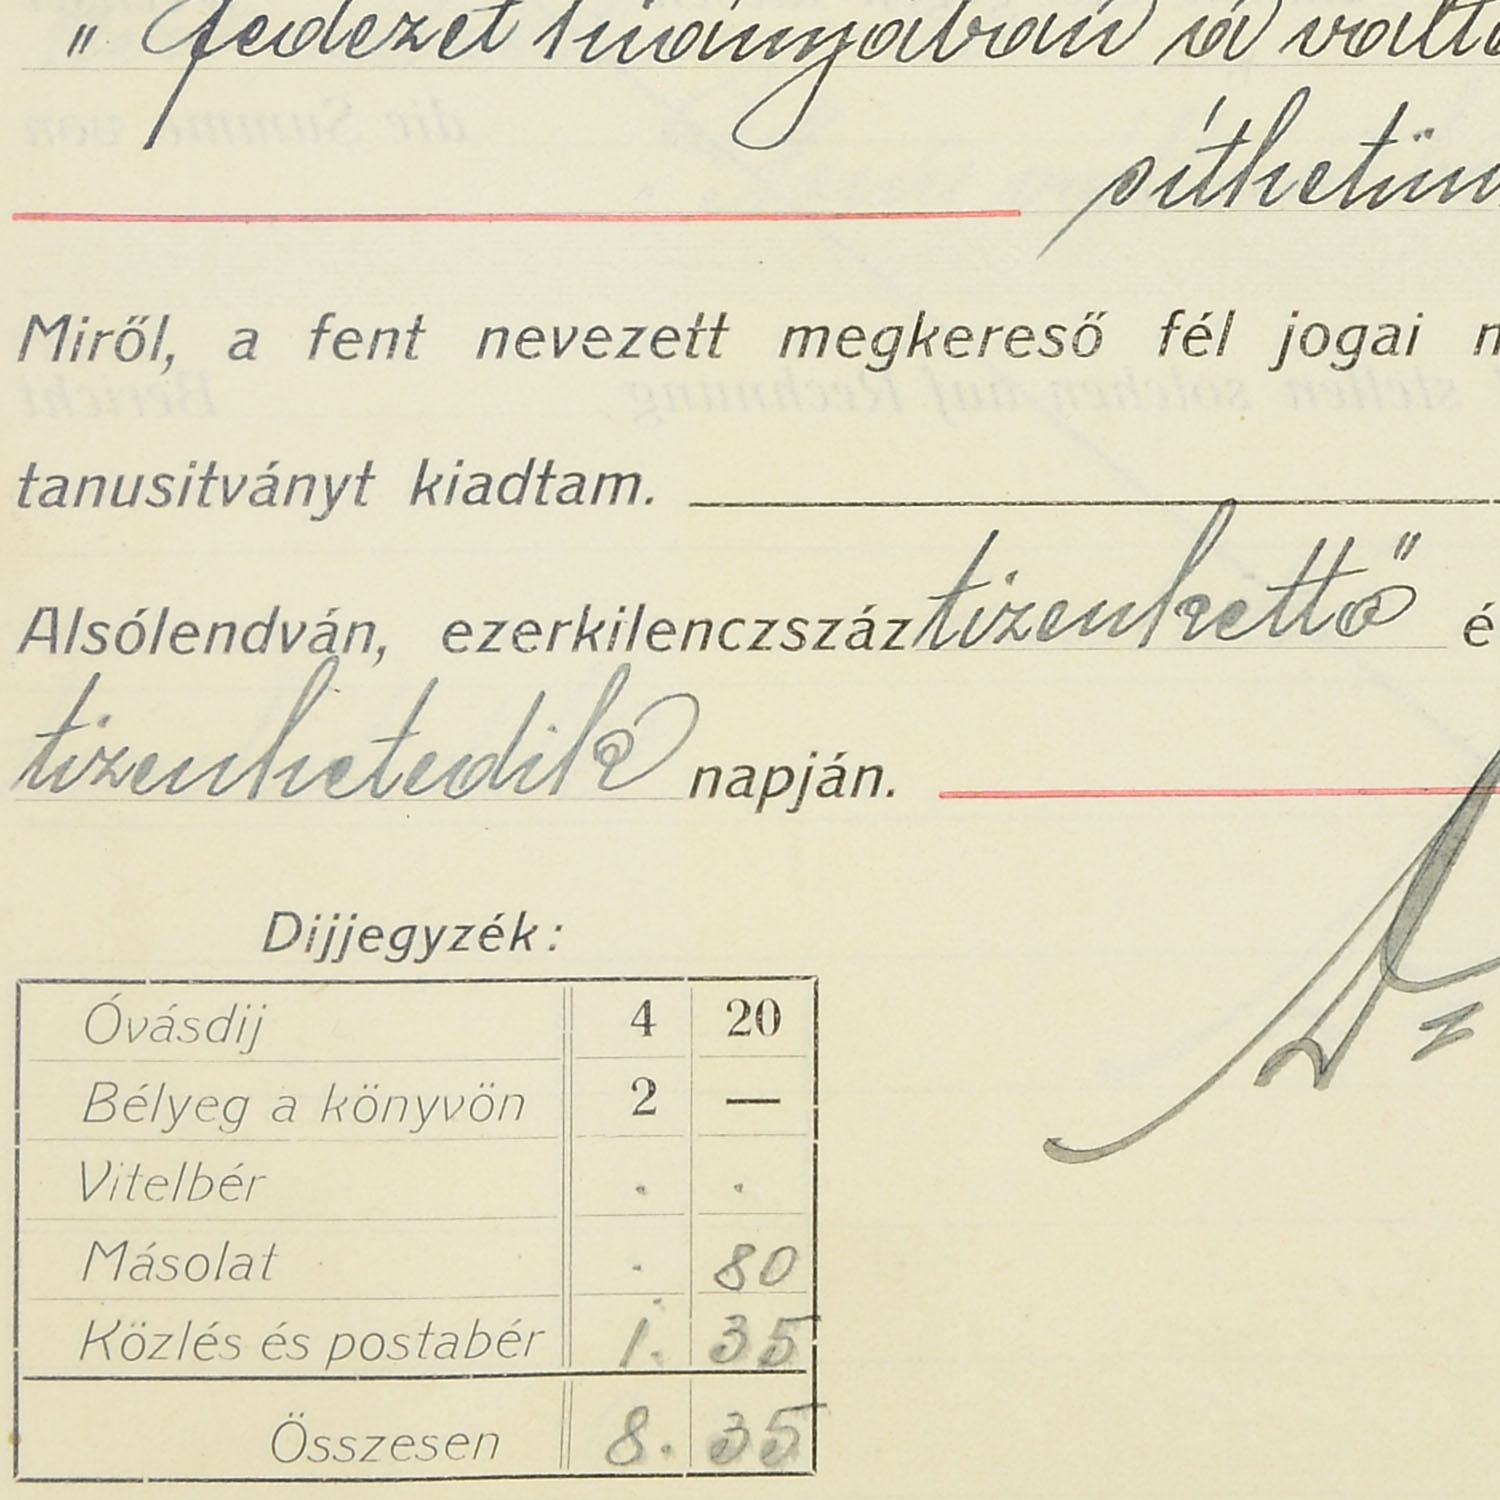 " fedezet hiányában a vált
síthetün
Miről, a fent nevezett megkereső fél jogai
tanusitványt kiadtam.
Alsólendván, ezerkilenczszáz tizenkettő é
tizenhetedik napján.
Dijjegyzék:
Óvásdij 4 20
Bélyeg a könyvön 2 —
Vitelbér . .
Másolat . 80
Közlés és postabér 1. 35
Összesen 8. 35